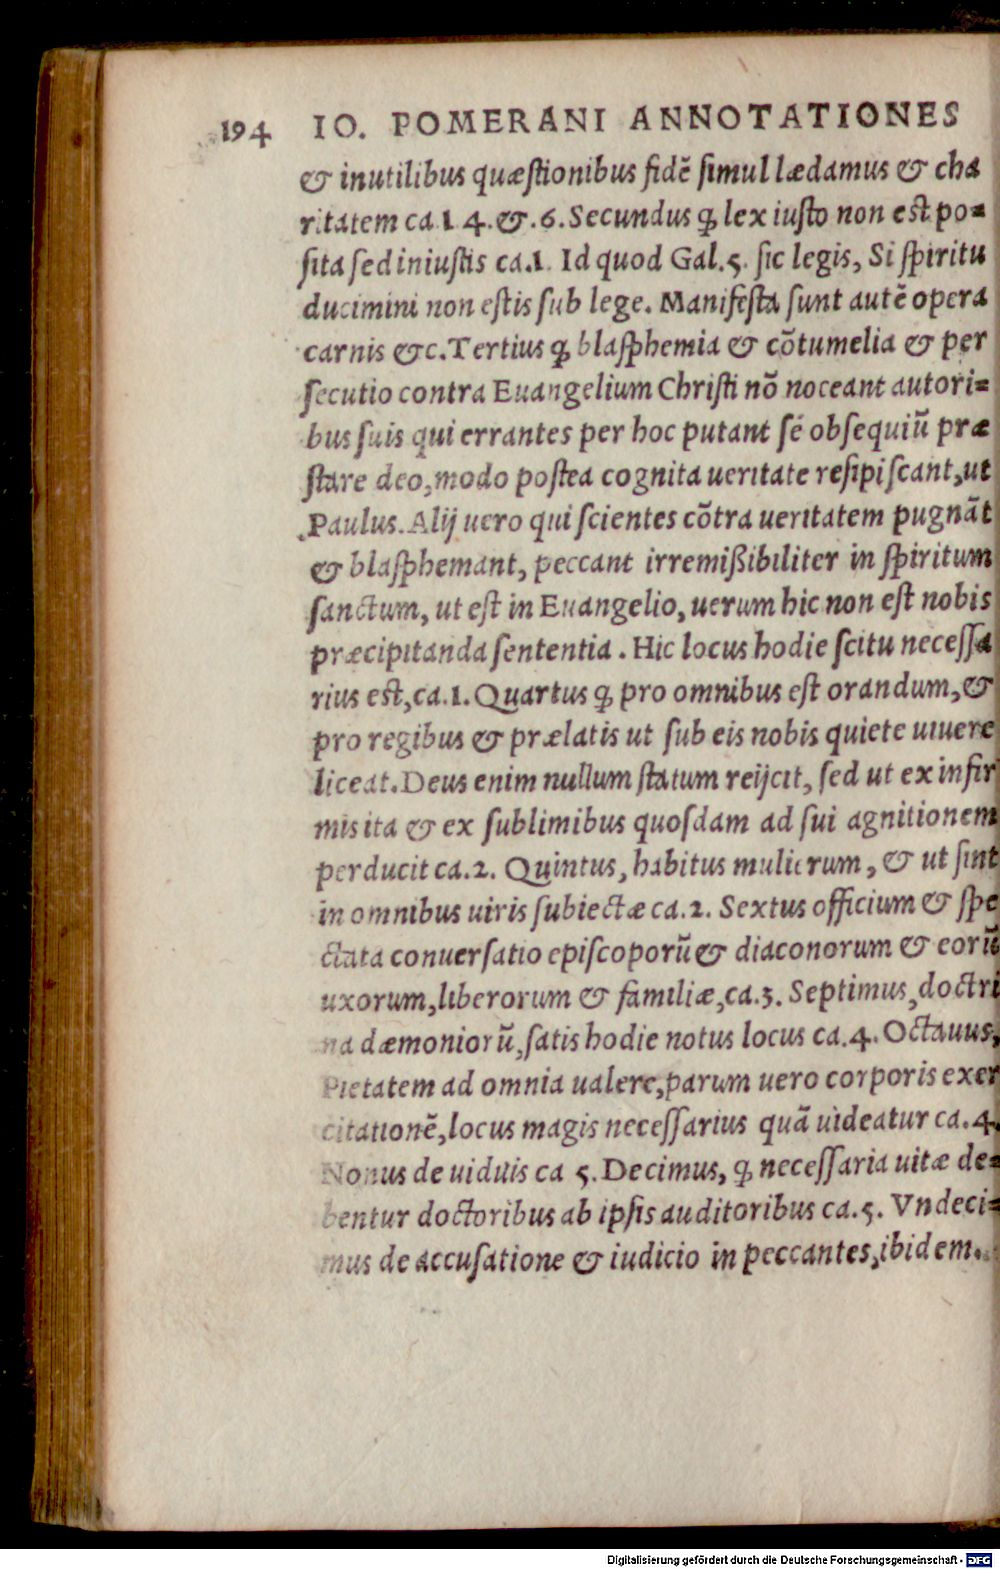 194 IO. POMERANI ANNOTATIONES
& inutilibus quæstionibus fidē simul lædamus & cha
ritatem ca.1 4.&.6. Secundus ꝙ lex iusto non est po=
sita sed iniustis ca.1. Id quod Gal.5. sic legis, Si spiritu
ducimini non estis sub lege. Manifesta sunt autē opera
carnis &c. Tertius ꝙ blasphemia & cōtumelia & per
secutio contra Euangelium Christi nō noceant autori=
bus suis qui errantes per hoc putant sé obsequiū præ
stare deo, modo postea cognita ueritate resipiscant, ut
Paulus. Alij uero qui scientes cōtra ueritatem pugnāt
& blasphemant, peccant irremißibiliter in spiritum
sanctum, ut est in Euangelio, uerum hic non est nobis
præcipitanda sententia. Hic locus hodie scitu necessa
rius est, ca.1. Quartus ꝙ pro omnibus est orandum, &
pro regibus & prælatis ut sub eis nobis quiete uiuere
liceat. Deus enim nullum statum reijcit, sed ut ex infir
mis ita & ex sublimibus quosdam ad sui agnitionem
perducit ca.2. Quintus, habitus mulierum, & ut sint
in omnibus uiris subiectæ ca.2. Sextus officium & spe
ctata conuersatio episcoporū & diaconorum & eorū
uxorum, liberorum & familiæ, ca.3. Septimus, doctri
na dæmoniorū, satis hodie notus locus ca.4. Octauus,
Pietatem ad omnia ualere, parum uero corporis exer
citationē, locus magis necessarius quā uideatur ca.4.
Nonus de uiduis ca 5. Decimus, ꝙ necessaria uitæ de=
bentur doctoribus ab ipsis auditoribus ca.5. Vndeci=
mus de accusatione & iudicio in peccantes, ibidem.
Digitalisierung gefördert durch die Deutsche Forschungsgemeinschaft - DFG